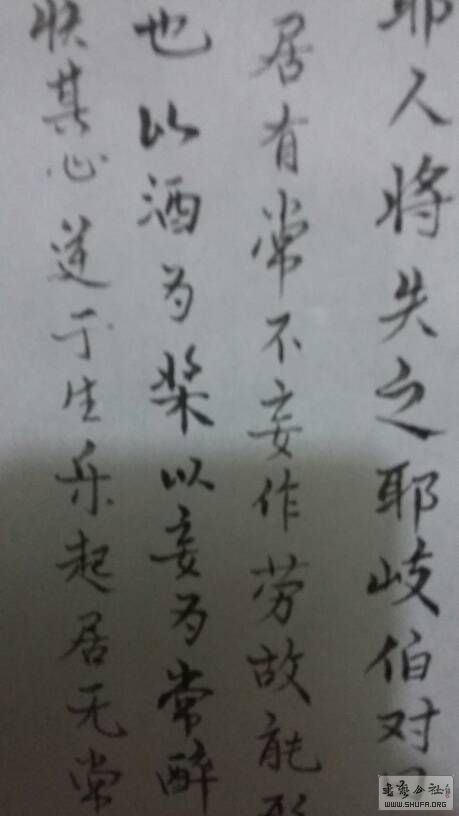 耶人将失之耶岐伯对曰
居有常不妄作劳故能形
也以酒为浆以妄为常醉
快其心逆于生乐起居无常
书艺公社
WWW.SHUFA.ORG